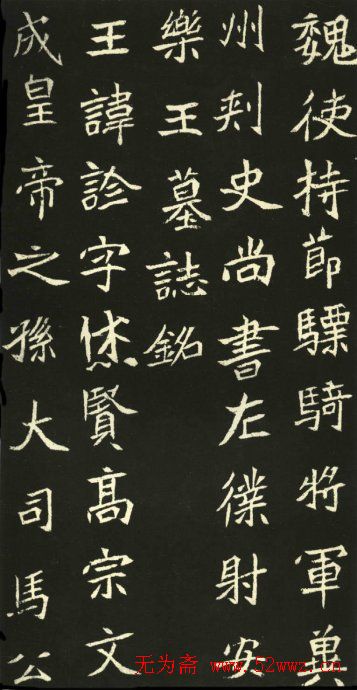 魏使持節驃騎将軍冀
州刾史尚書左僕射安
樂王墓誌銘
王諱診字烋賢髙宗文
成皇帝之孫大司馬公
无为斋 www.52wwz.cn